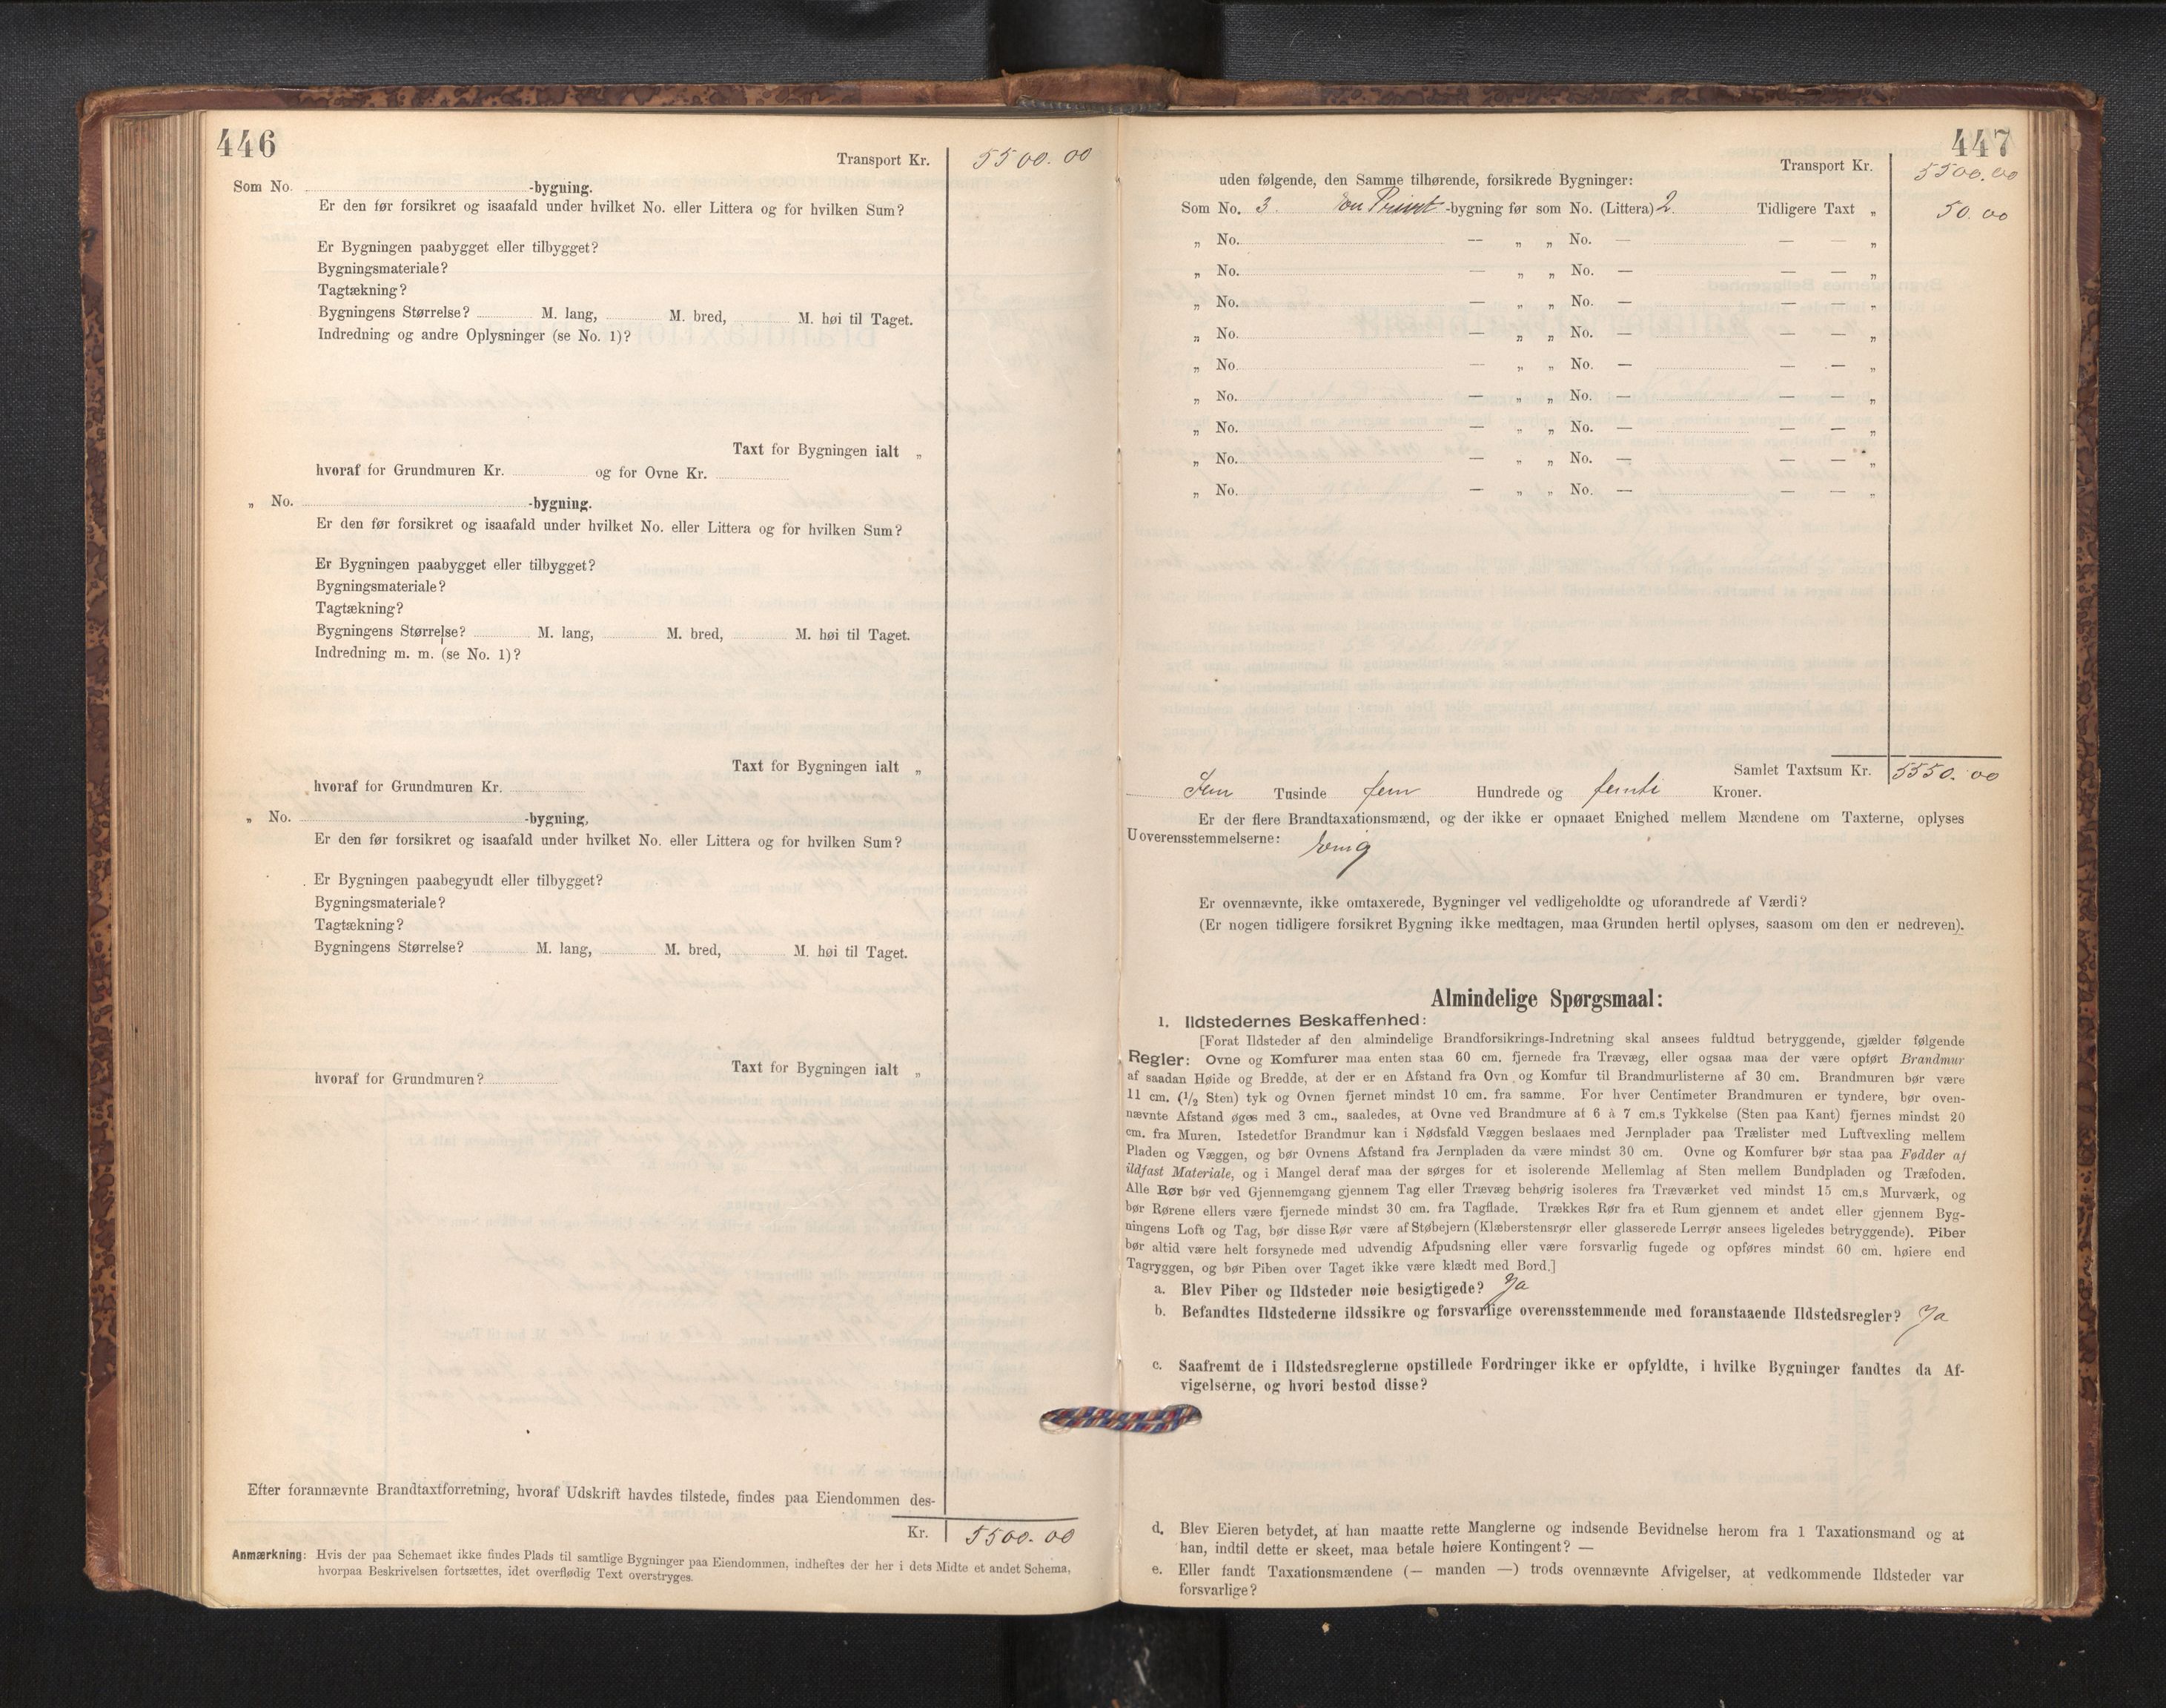 446
Transport Kr. 5500.00
Som No. -bygning.
Er den før forsikret og isaafald under hvilket No. eller Littera og for hvilken Sum?
Er Bygningen paabygget eller tilbygget?
Bygningsmateriale?
Tagtækning?
Bygningens Størrelse? M. lang, M. bred, M. høi til Taget.
Indredning og andre Oplysninger (se No. 1)?
Taxt for Bygningen ialt „
hvoraf for Grundmuren Kr. og for Ovne Kr.
„ No. -bygning.
Er den før forsikret og isaafald under hvilket No. eller Littera og for hvilken Sum?
Er Bygningen paabygget eller tilbygget?
Bygningsmateriale?
Tagtækning?
Bygningens Størrelse? M. lang, M. bred, M. høi til Taget.
Indredning m. m. (se No. 1)?
Taxt for Bygningen ialt „
hvoraf for Grundmuren Kr.
„ No. -bygning,
Er den før forsikret og isaafald under hvilket No. eller Littera og for hvilken Sum?
Er Bygningen paabegyndt eller tilbygget?
Bygningsmateriale?
Tagtækning?
Bygningens Størrelse? M. lang, M. bred, M. høi til Taget.
Taxt for Bygningen ialt „
hvoraf for Grundmuren?
Efter forannævnte Brandtaxtforretning, hvoraf Udskrift havdes tilstede, findes paa Eiendommen des-
Kr. 5500.00
Anmærkning: Hvis der paa Schemaet ikke findes Plads til samtlige Bygninger paa Eiendommen, indheftes der her i dets Midte et andet Schema,
hvorpaa Beskrivelsen fortsættes, idet overflødig Text overstryges.
447
Transport Kr. 5500.00
uden følgende, den Samme tilhørende, forsikrede Bygninger:
Som No. 3. -bygning før som No. (Littera) 2. Tidligere Taxt „ 50.00
„ No. — „ „ No. — — — „
„ No. — „ „ No. — — — „
„ No. — „ „ No. — — — „
„ No. — „ „ No. — — — „
„ No. — „ „ No. — — — „
„ No. — „ „ No. — — — „
„ No. — „ „ No. — — — „
„ No. — „ „ No. — — — „
„ No. — „ „ No. — — — „
Samlet Taxtsum Kr. 5550.00
Fem Tusinde fem Hundrede og femti Kroner.
Er der flere Brandtaxationsmænd, og der ikke er opnaaet Enighed mellem Mændene om Taxterne, oplyses
Uoverensstemmelserne: Enig
Er ovennævnte, ikke omtaxerede, Bygninger vel vedligeholdte og uforandrede af Værdi?
(Er nogen tidligere forsikret Bygning ikke medtagen, maa Grunden hertil oplyses, saasom om den er nedreven).
Almindelige Spørgsmaal:
1. Ildstedernes Beskaffenhed:
[Forat Ildsteder af den almindelige Brandforsikrings-Indretning skal ansees fuldtud betryggende, gjælder følgende
Regler: Ovne og Komfurer maa enten staa 60 cm. fjernede fra Trævæg, eller ogsaa maa der være opført Brandmur
af saadan Høide og Bredde, at der er en Afstand fra Ovn og Komfur til Brandmurlisterne af 30 cm. Brandmuren bør være
11 cm. (1/2 Sten) tyk og Ovnen fjernet mindst 10 cm. fra samme. For hver Centimeter Brandmuren er tyndere, bør oven-
nævnte Afstand øges med 3 cm., saaledes, at Ovne ved Brandmure af 6 à 7 cm.s Tykkelse (Sten paa Kant) fjernes mindst 20
cm. fra Muren. Istedetfor Brandmur kan i Nødsfald Væggen beslaaes med Jernplader paa Trælister med Luftvexling mellem
Pladen og Væggen, og bør Ovnens Afstand fra Jernpladen da være mindst 30 cm. Ovne og Komfurer bør staa paa Fødder af
ildfast Materiale, og i Mangel deraf maa der sørges for et isolerende Mellemlag af Sten mellem Bundpladen og Træfoden.
Alle Rør bør ved Gjennemgang gjennem Tag eller Trævæg behørig isoleres fra Træværket ved mindst 15 cm.s Murværk, og
bør Rørene ellers være fjernede mindst 30 cm. fra Tagflade. Trækkes Rør fra et Rum gjennem et andet eller gjennem Byg-
ningens Loft og Tag, bør disse Rør være af Støbejern (Klæberstensrør eller glasserede Lerrør ansees ligeledes betryggende). Piber
bør altid være helt forsynede med udvendig Afpudsning eller være forsvarlig fugede og opføres mindst 60 cm. høiere end
Tagryggen, og bør Piben over Taget ikke være klædt med Bord.]
a. Blev Piber og Ildsteder nøie besigtigede? Ja
b. Befandtes Ildstederne ildssikre og forsvarlige overensstemmende med foranstaaende Ildstedsregler? Ja
c. Saafremt de i Ildstedsreglerne opstillede Fordringer ikke er opfyldte, i hvilke Bygninger fandtes da Af-
vigelserne, og hvori bestod disse?
d. Blev Eieren betydet, at han maatte rette Manglerne og indsende Bevidnelse herom fra 1 Taxationsmand og at
han, indtil dette er skeet, maa betale høiere Kontingent? —
e. Eller fandt Taxationsmændene (— manden —) trods ovennævnte Afvigelser, at vedkommende Ildsteder var
forsvarlige?